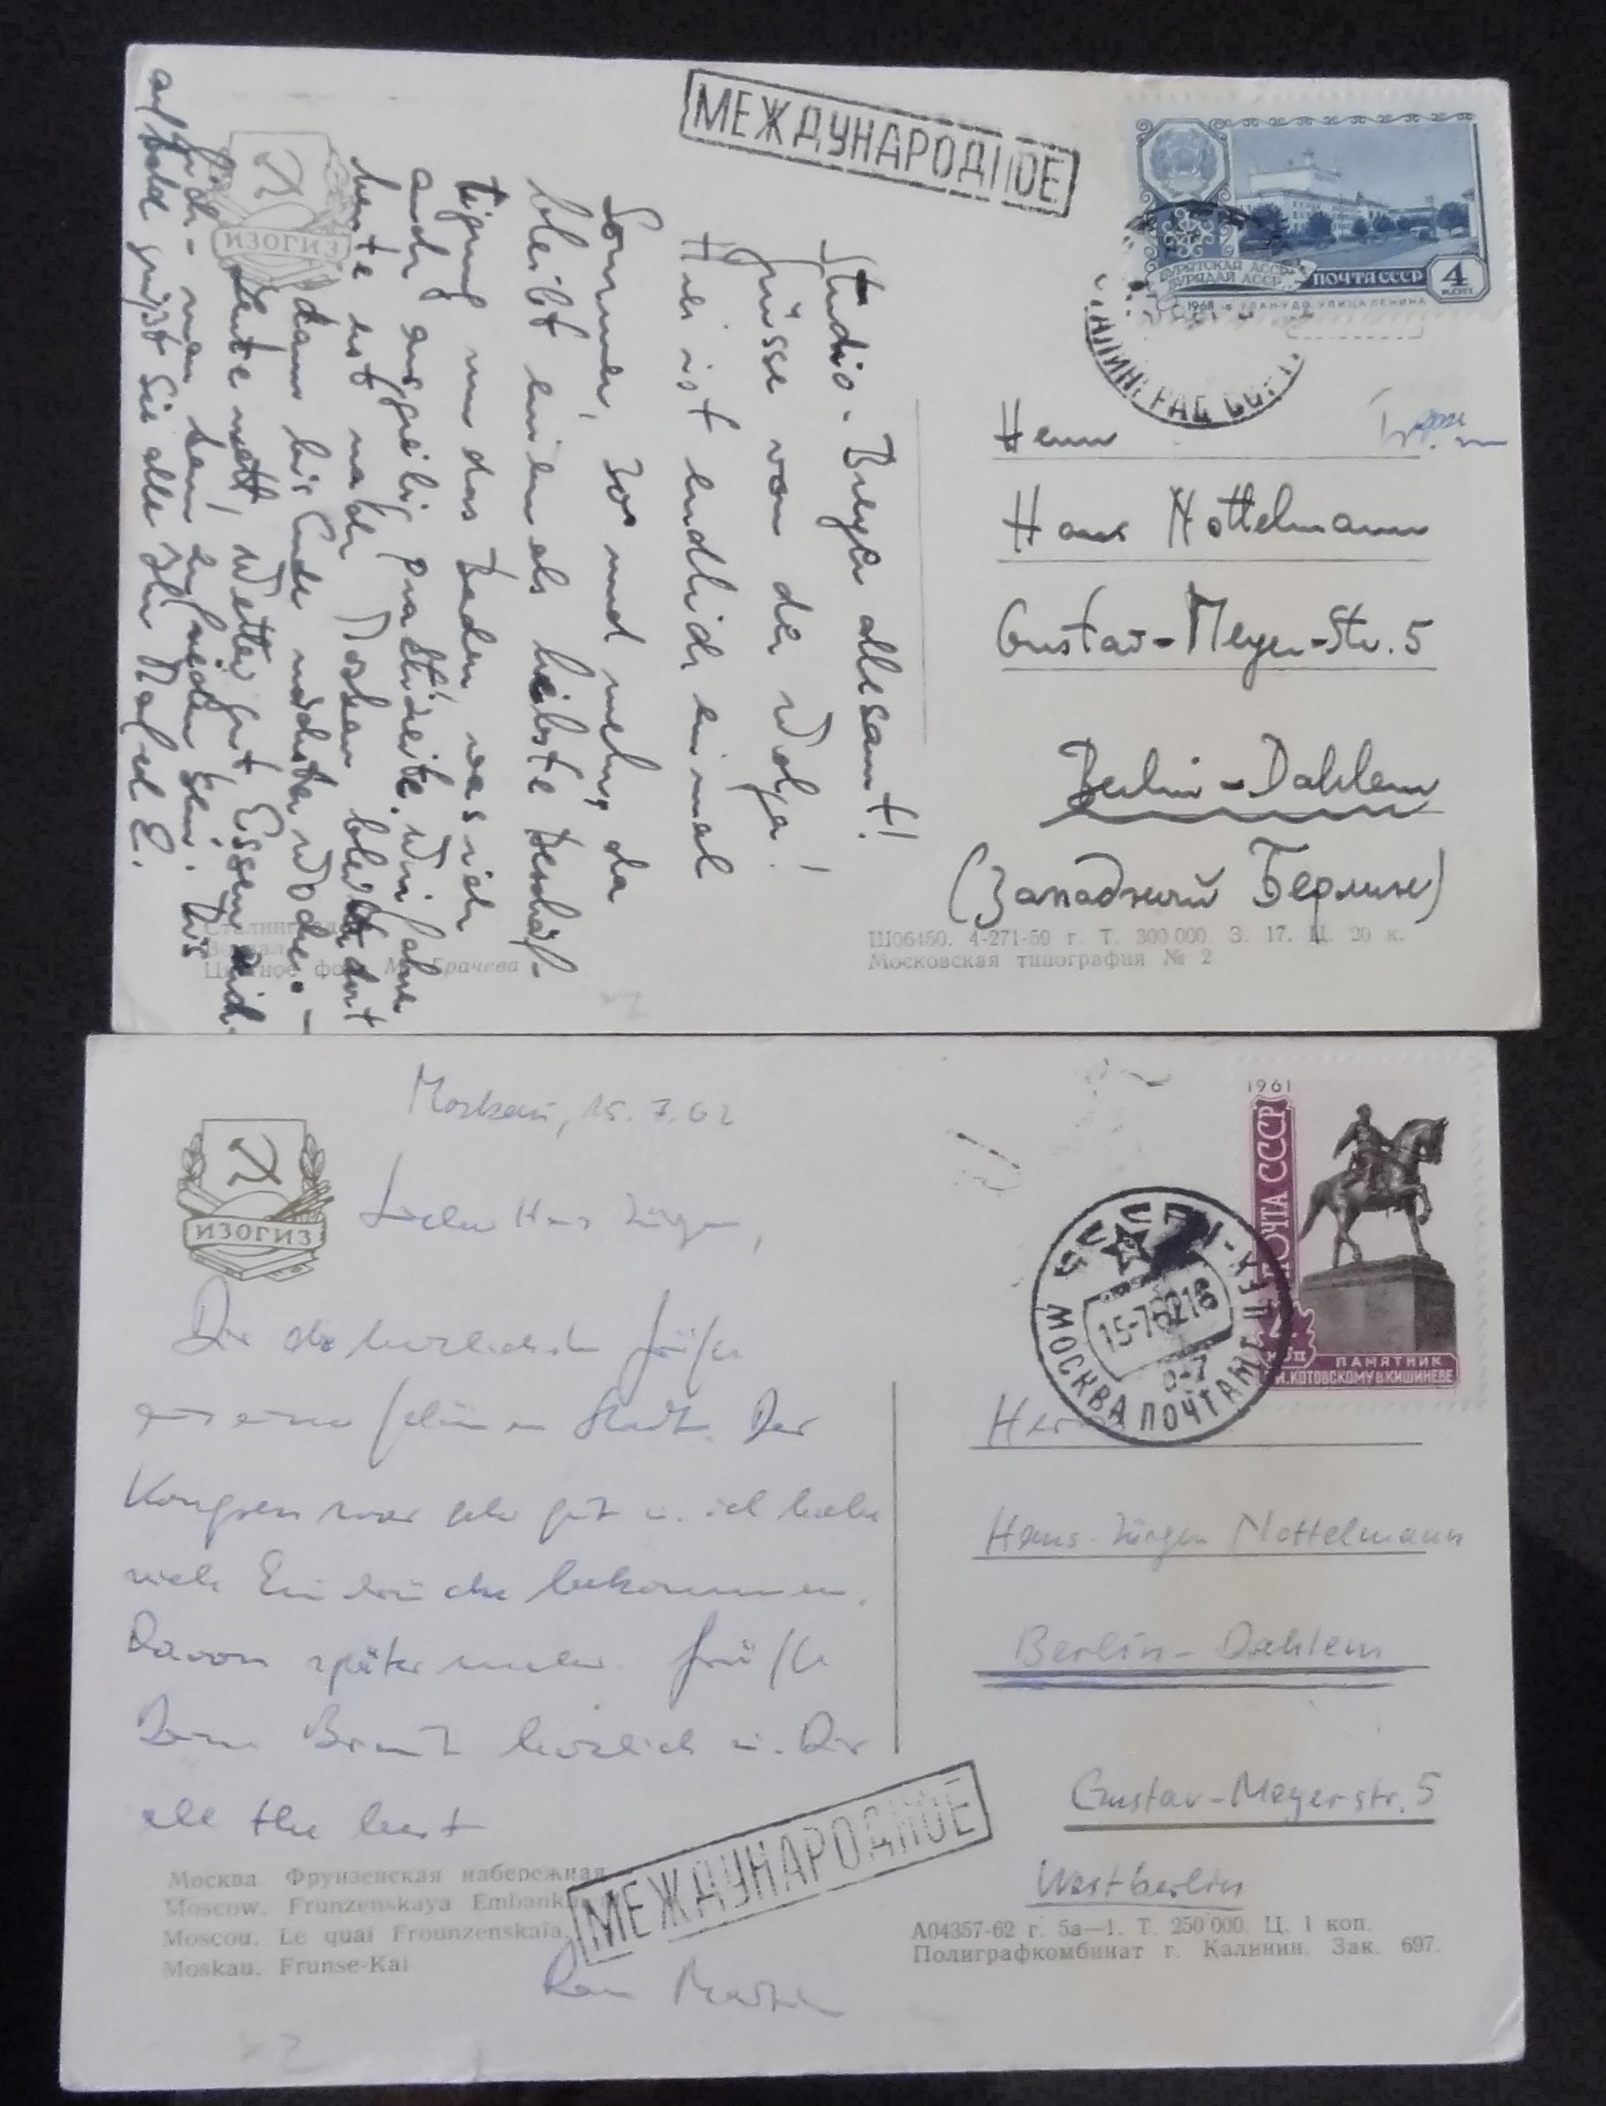 МЕЖДУНАРОДНОЕ
БУРЯТСКАЯ АССР
БУРЯДАЙ АССР
ПОЧТА СССР
4
КОП
УЛАН-УДЭ УЛИЦА ЛЕНИНА
ИЗОГИЗ
Studio-Breyer allesamt!
Grüsse von der Wolga!
Hier ist endlich einmal
Sommer, 30° und mehr, da
bleibt einem als liebste Beschäf-
tigung nur das Baden, was ich
auch ausgiebig praktiziere. Wir fahren
heute not nach Moskau bleiben dort
dann bis Ende nächster Woche. –
Leute nett, Wetter gut, Essen reich-
lich – man kann zufrieden sein. Bis
auf bald grüßt Sie alle Ihr
Herrn
Hans Nottelmann
Gustav-Meyer-Str. 5
Berlin-Dahlem
(Западный Берлин)
Ш06450. 4-271-59 г. Т. 300 000. З. 17. Ц. 20 к.
Московская типография № 2
Moskau, 15.7.62
Lieber Hans Jürgen,
Dir die herzlichsten Grüße
aus einer schönen Stadt. Der
Kongress war sehr gut u. ich habe
viele Eindrücke bekommen.
Davon später mehr. Grüße
Deine Braut herzlich u. Dir
all the best
Dein Martin
ИЗОГИЗ
1961
ПОЧТА СССР
КОП
ПАМЯТНИК
Г. И. КОТОВСКОМУ В КИШИНЕВЕ
СССР
15-7 62 18
МОСКВА ПОЧТАМТ
Herrn
Hans-Jürgen Nottelmann
Berlin-Dahlem
Gustav-Meyerstr. 5
Westberlin
МЕЖДУНАРОДНОЕ
Москва. Фрунзенская набережная
Moscow. Frunzenskaya Embankment
Moscou. Le quai Frounzenskaïa.
Moskau. Frunse-Kai
А04357-62 г. 5а—1. Т. 250 000. Ц. 1 коп.
Полиграфкомбинат г. Калинин. Зак. 697.